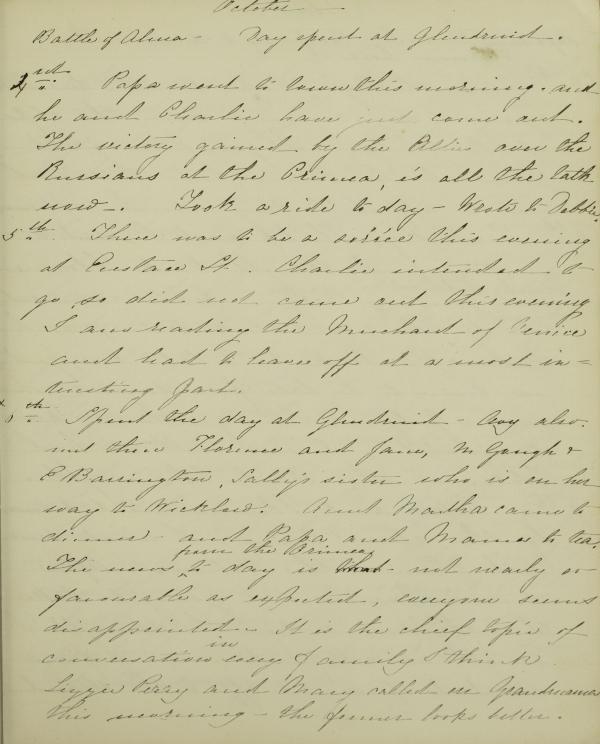 October
Battle of Alma - Day spent at Glendruid.
Papa went to town this morning - and
he and Charlie have just come out.
The victory gained by the Allies over the
Russians at the Crimea, is all the talk
now -. Took a ride to day - Wrote to Debbie.
5th. There was to be a soirée this evening
at Eustace St. Charlie intended to
go, so did not come out this evening
I am reading the Merchant of Venice
and had to leave off at a most in=
teresting part.
Spent the day at Glendruid - also.
met there Florence and Jane, M Gough &
E Barrington, Sally's sister who is on her
way to Wicklow. Aunt Martha came to
dinner - and Papa and Mama to tea.
from the Crimea
The news ^ to day is - not nearly so
favourable as expected, everyone seems
disappointed - It is the chief topic of
in
conversation every family I think
Lizzie Perry and Mary called on Grandmama
this morning - the former looks better.